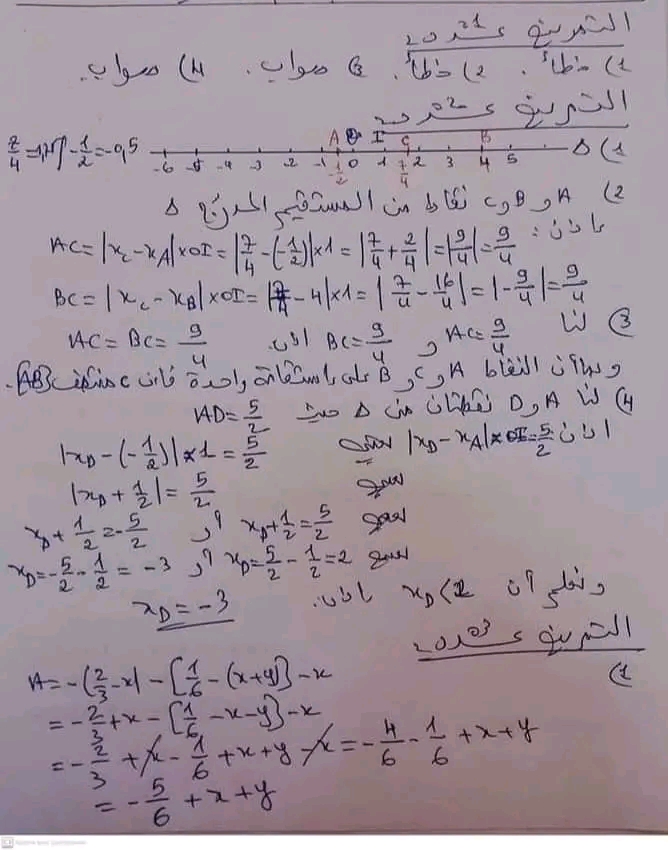 التمرين عـــدد1
1) خطأ. 2) خطأ. 3) صواب. 4) صواب.
التمرين عـــدد2
1) Δ -6 -5 -4 -3 -2 -1 A -1/2 0 I 1 C 7/4 2 3 B 4 5 7/4=1,75 -1/2=-0,5
2) A و B و C نقاط من المستقيم المدرّج Δ
إذن:
AC = |x_C - x_A| × OI = |7/4 - (-1/2)| × 1 = |7/4 + 2/4| = |9/4| = 9/4
BC = |x_C - x_B| × OI = |7/4 - 4| × 1 = |7/4 - 16/4| = |-9/4| = 9/4
3) لنا AC = 9/4 و BC = 9/4 إذن AC = BC = 9/4
وبما أن النقاط A و C و B على إستقامة واحدة فإن C منتصف [AB].
4) لنا A و D نقطتان من Δ حيث AD = 5/2
إذن |x_D - x_A| × OI = 5/2 يعني |x_D - (-1/2)| × 1 = 5/2
يعني |x_D + 1/2| = 5/2
يعني x_D + 1/2 = 5/2 أو x_D + 1/2 = -5/2
يعني x_D = 5/2 - 1/2 = 2 أو x_D = -5/2 - 1/2 = -3
ونعلم أن x_D < إذن x_D = -3
التمرين عـــدد3
1)
A = -(2/3 - x) - [1/6 - (x+y)] - x
= -2/3 + x - [1/6 - x - y] - x
= -2/3 + x - 1/6 + x + y - x = -4/6 - 1/6 + x + y
= -5/6 + x + y